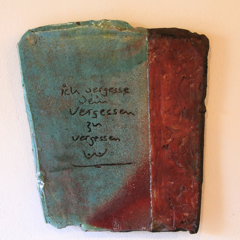 ich vergesse
dein
vergessen
zu
vergessen